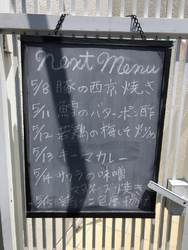 Next Menu
5/8 豚の西京焼き
5/11 鱈のバターポン酢
5/12 若鶏の梅しそ
5/13 キーマカレー
5/14 サワラの味噌
マヨネーズ焼き
5/15